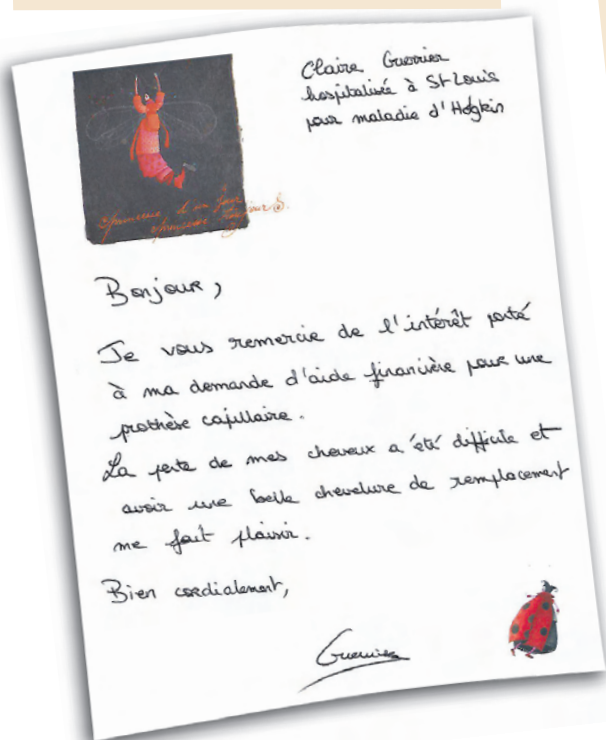 Claire Guerrier
hospitalisée à St Louis
pour maladie d'Hogkin
Bonjour,
Je vous remercie de l'intérêt porté
à ma demande d'aide financière pour une
prothèse capillaire.
La perte de mes cheveux a été difficile et
avoir une belle chevelure de remplacement
me fait plaisir.
Bien cordialement,
Guerrier